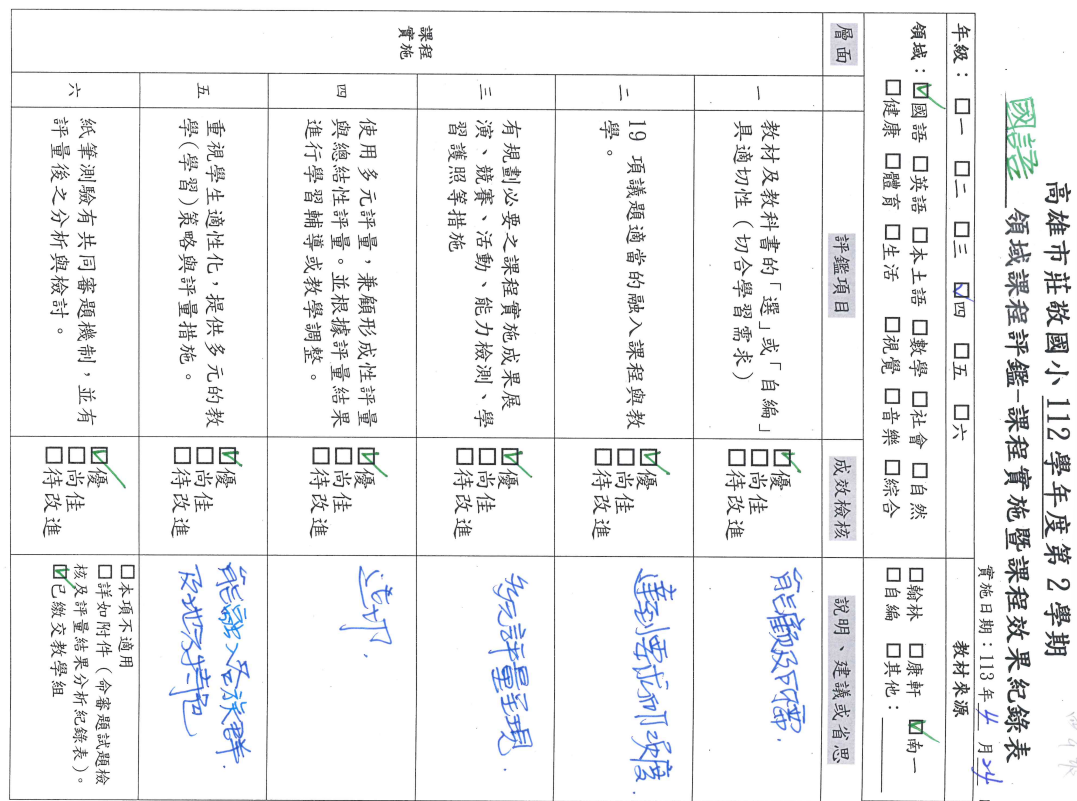 高雄市莊敬國小 112學年度第2學期
國語 領域課程評鑑-課程實施暨課程效果紀錄表
實施日期：113年 4 月 24
年級：□一 □二 □三 ☑四 □五 □六
教材來源
領域：☑國語 □英語 □本土語 □數學 □社會 □自然
□健康 □體育 □生活 □視覺 □音樂 □綜合
□翰林 □康軒 ☑南一
□自編 □其他：
層面
評鑑項目
成效檢核
說明、建議或省思
課程
實施
一
教材及教科書的「選」或「自編」
具適切性（切合學習需求）
☑優
□尚佳
□待改進
能顧及所需.
二
19 項議題適當的融入課程與教
學。
☑優
□尚佳
□待改進
達到要求和強度
三
有規劃必要之課程實施成果展
演、競賽、活動、能力檢測、學
習護照等措施
☑優
□尚佳
□待改進
多元評量呈現.
四
使用多元評量，兼顧形成性評量
與總結性評量。並根據評量結果
進行學習輔導或教學調整。
☑優
□尚佳
□待改進
適切.
五
重視學生適性化，提供多元的教
學(學習)策略與評量措施。
☑優
□尚佳
□待改進
能融入各族群.
及地方特色
六
紙筆測驗有共同審題機制，並有
評量後之分析與檢討。
☑優
□尚佳
□待改進
□本項不適用
□詳如附件（命審題試題檢
核及評量結果分析紀錄表）。
☑已繳交教學組